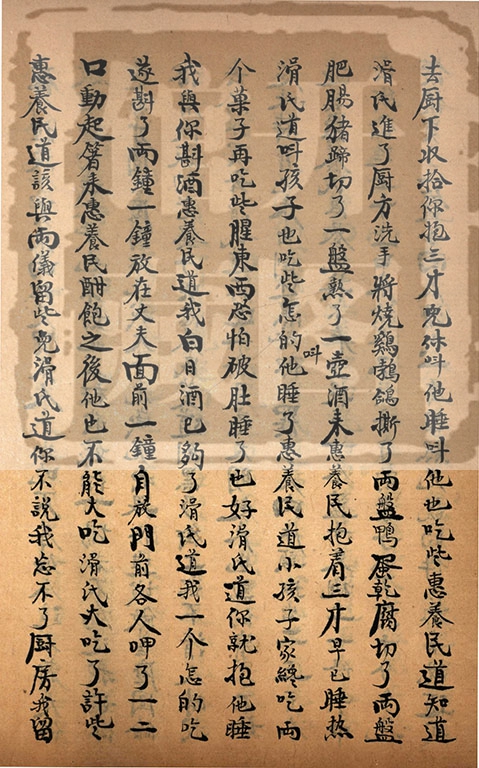 去厨下收拾你抱三才兒休叫他睡叫他也吃些惠養民道知道
滑氏進了厨方洗手將燒鷄鵓鴿撕了両盤鴨蛋乾腐切了両盤
肥腸猪蹄切了一盤熱了一壺酒来惠養民抱着三才早已睡熱
滑氏道叫孩子也吃些怎的叫他睡了惠養民道小孩子家終吃両
个菓子再吃些腥東西恐怕破肚睡了也好滑氏道你就抱他睡
我與你斟酒惠養民道我白日酒已夠了滑氏道我一个怎的吃
遂斟了両鐘一鐘放在丈夫面前一鐘自放門前各人呷了一二
口動起箸来惠養民酣飽之後他也不能大吃滑氏大吃了許些
惠養民道該與両儀留些兒滑氏道你不說我忘不了厨房我留